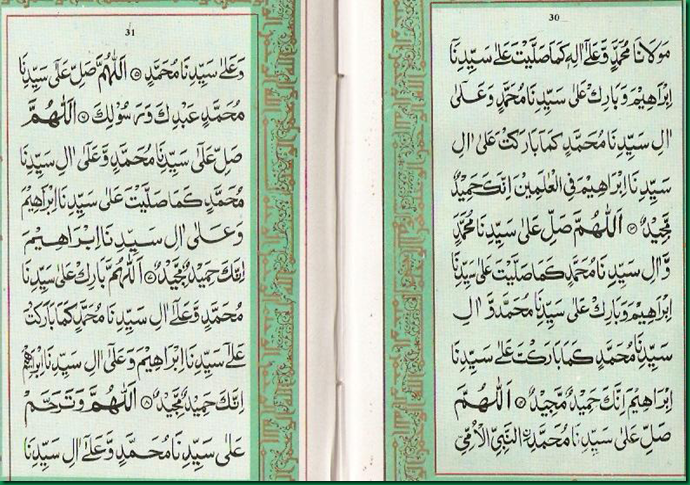 30
مَوْلَانَا مُحَمَّدٍ وَّعَلٰٓى اٰلِهٖ كَمَا صَلَّيْتَ عَلٰى سَيِّدِنَآ
اِبْرَاهِيْمَ وَبَارِكْ عَلٰى سَيِّدِنَا مُحَمَّدٍ وَّعَلٰى
اٰلِ سَيِّدِنَا مُحَمَّدٍ كَمَا بَارَكْتَ عَلٰى اٰلِ
سَيِّدِنَا اِبْرَاهِيْمَ فِى الْعٰلَمِيْنَ اِنَّكَ حَمِيْدٌ
مَّجِيْدٌ ۝ اَللّٰهُمَّ صَلِّ عَلٰى سَيِّدِنَا مُحَمَّدٍ
وَّاٰلِ سَيِّدِنَا مُحَمَّدٍ كَمَا صَلَّيْتَ عَلٰى سَيِّدِنَآ
اِبْرَاهِيْمَ وَبَارِكْ عَلٰى سَيِّدِنَا مُحَمَّدٍ وَّاٰلِ
سَيِّدِنَا مُحَمَّدٍ كَمَا بَارَكْتَ عَلٰى سَيِّدِنَا
اِبْرَاهِيْمَ اِنَّكَ حَمِيْدٌ مَّجِيْدٌ ۝ اَللّٰهُمَّ
صَلِّ عَلٰى سَيِّدِنَا مُحَمَّدِ ۨالنَّبِيِّ الْاُمِّيِّ
31
وَعَلٰى سَيِّدِنَا مُحَمَّدٍ ۝ اَللّٰهُمَّ صَلِّ عَلٰى سَيِّدِنَا
مُحَمَّدٍ عَبْدِكَ وَرَسُوْلِكَ ۝ اَللّٰهُمَّ
صَلِّ عَلٰى سَيِّدِنَا مُحَمَّدٍ وَّعَلٰٓى اٰلِ سَيِّدِنَا
مُحَمَّدٍ كَمَا صَلَّيْتَ عَلٰى سَيِّدِنَا اِبْرَاهِيْمَ
وَعَلٰٓى اٰلِ سَيِّدِنَا اِبْرَاهِيْمَ
اِنَّكَ حَمِيْدٌ مَّجِيْدٌ ۝ اَللّٰهُمَّ بَارِكْ عَلٰى سَيِّدِنَا
مُحَمَّدٍ وَّعَلٰٓى اٰلِ سَيِّدِنَا مُحَمَّدٍ كَمَا بَارَكْتَ
عَلٰى سَيِّدِنَا اِبْرَاهِيْمَ وَعَلٰٓى اٰلِ سَيِّدِنَا اِبْرَاهِيْمَ
اِنَّكَ حَمِيْدٌ مَّجِيْدٌ ۝ اَللّٰهُمَّ وَتَرَحَّمْ
عَلٰى سَيِّدِنَا مُحَمَّدٍ وَّعَلٰٓى اٰلِ سَيِّدِنَا